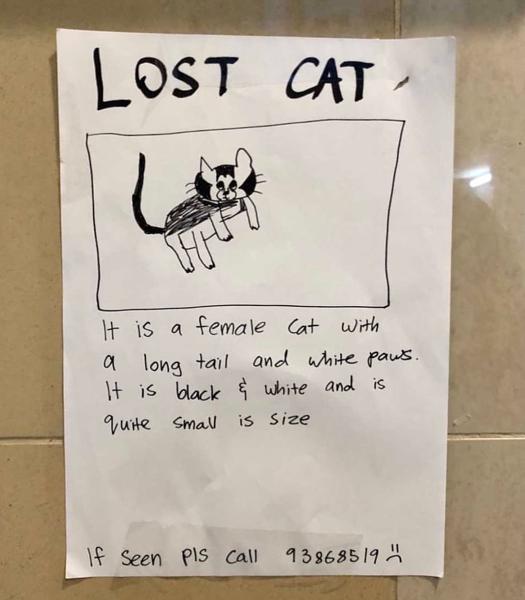 LOST CAT
It is a female cat with
a long tail and white paws.
It is black & white and is
quite small is size
If seen pls call 93868519